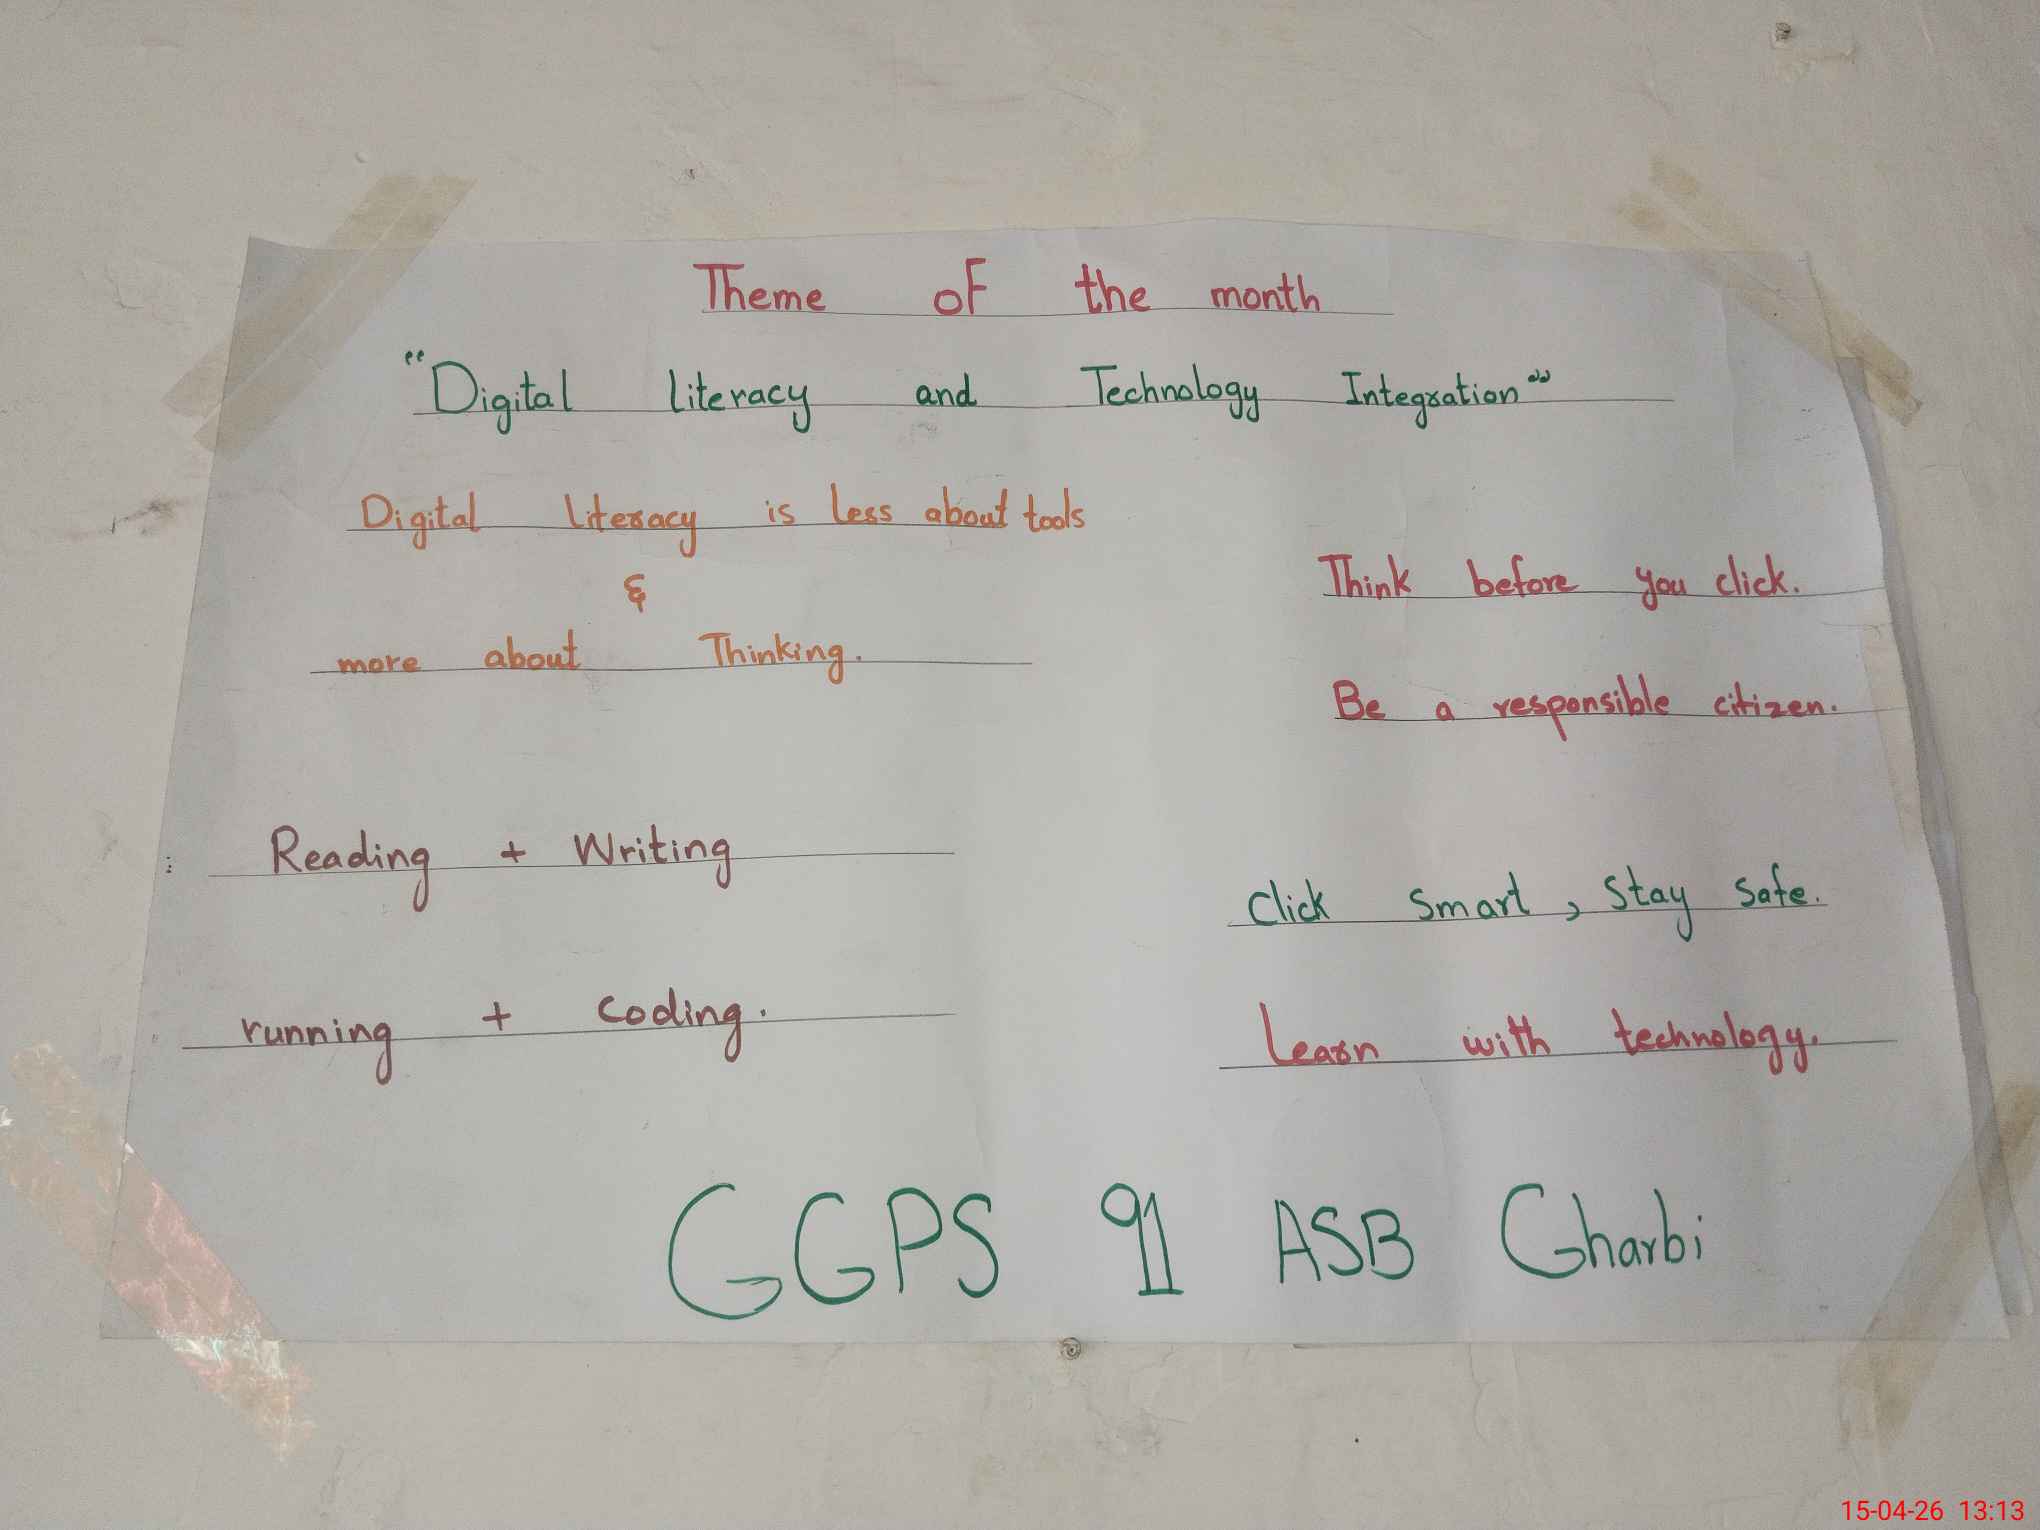 Theme of the month
"Digital literacy and Technology Integration"
Digital literacy is less about tools
&
more about Thinking.
Think before you click.
Be a responsible citizen.
Reading + Writing
running + coding.
Click Smart, Stay Safe.
Learn with technology.
GGPS 91 ASB Gharbi
15-04-26 13:13